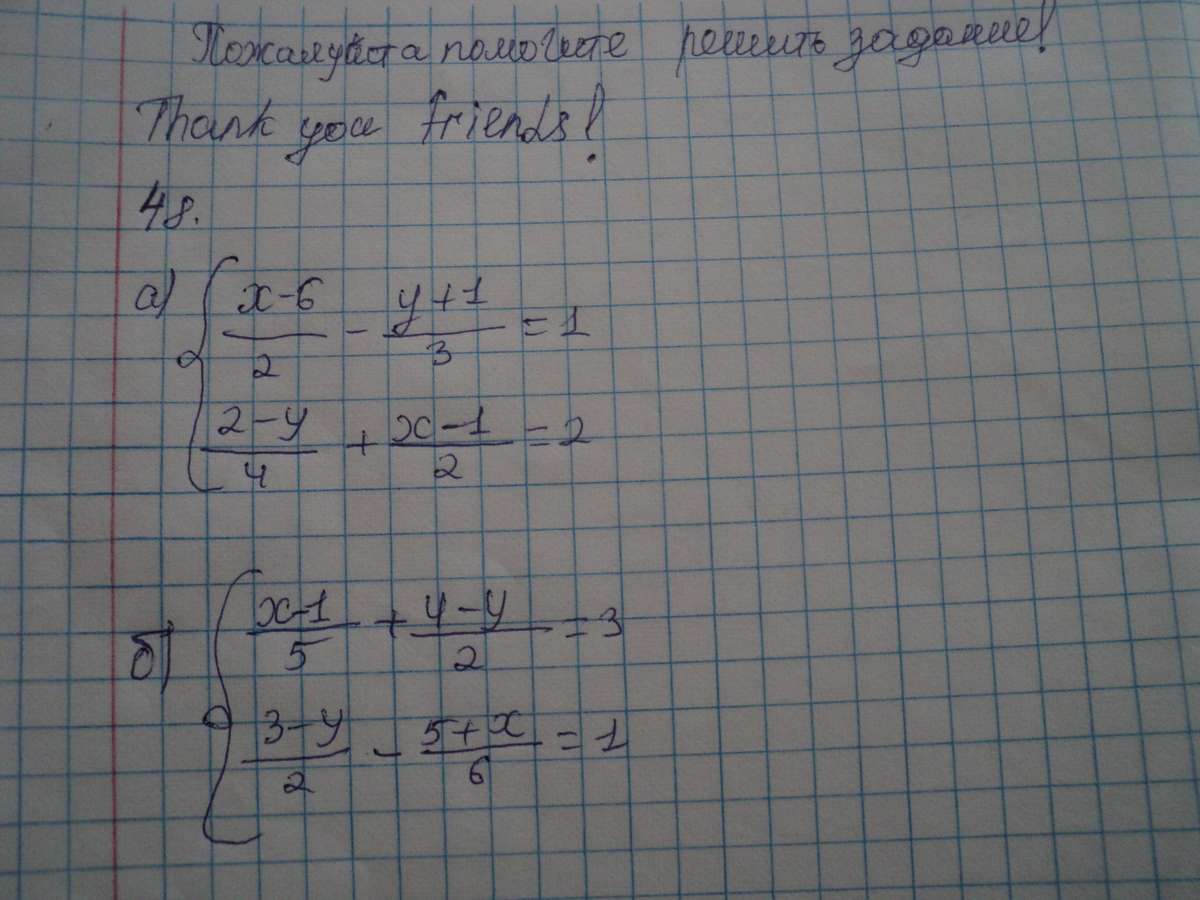 Пожалуйста помогите решить задание!
Thank you friends!
48.
а) { (x-6)/2 - (y+1)/3 = 1
(2-y)/4 + (x-1)/2 = 2
б) { (x-1)/5 + (4-y)/2 = 3
(3-y)/2 - (5+x)/6 = 1